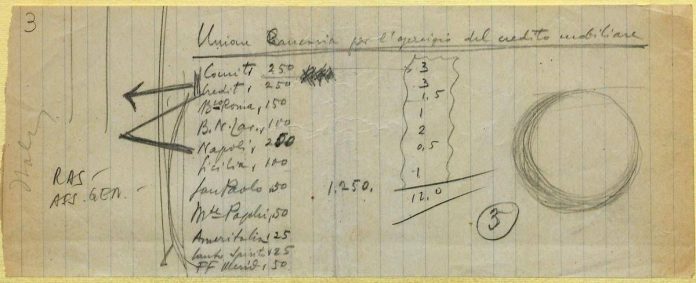 3
Unione Bancaria per l'esercizio del credito mobiliare
Comit, 250
Credit, 250
Bco Roma, 150
B. N. Lav., 100
Napoli, 200
Sicilia, 100
San Paolo, 50
Mte Paschi, 50
Ameritalia, 25
Santo Spirito, 25
FF Merid, 50
1.250.
3
3
1,5
1
2
0,5
1
12,0
5
RAS -
ASS. GEN. -
Italy